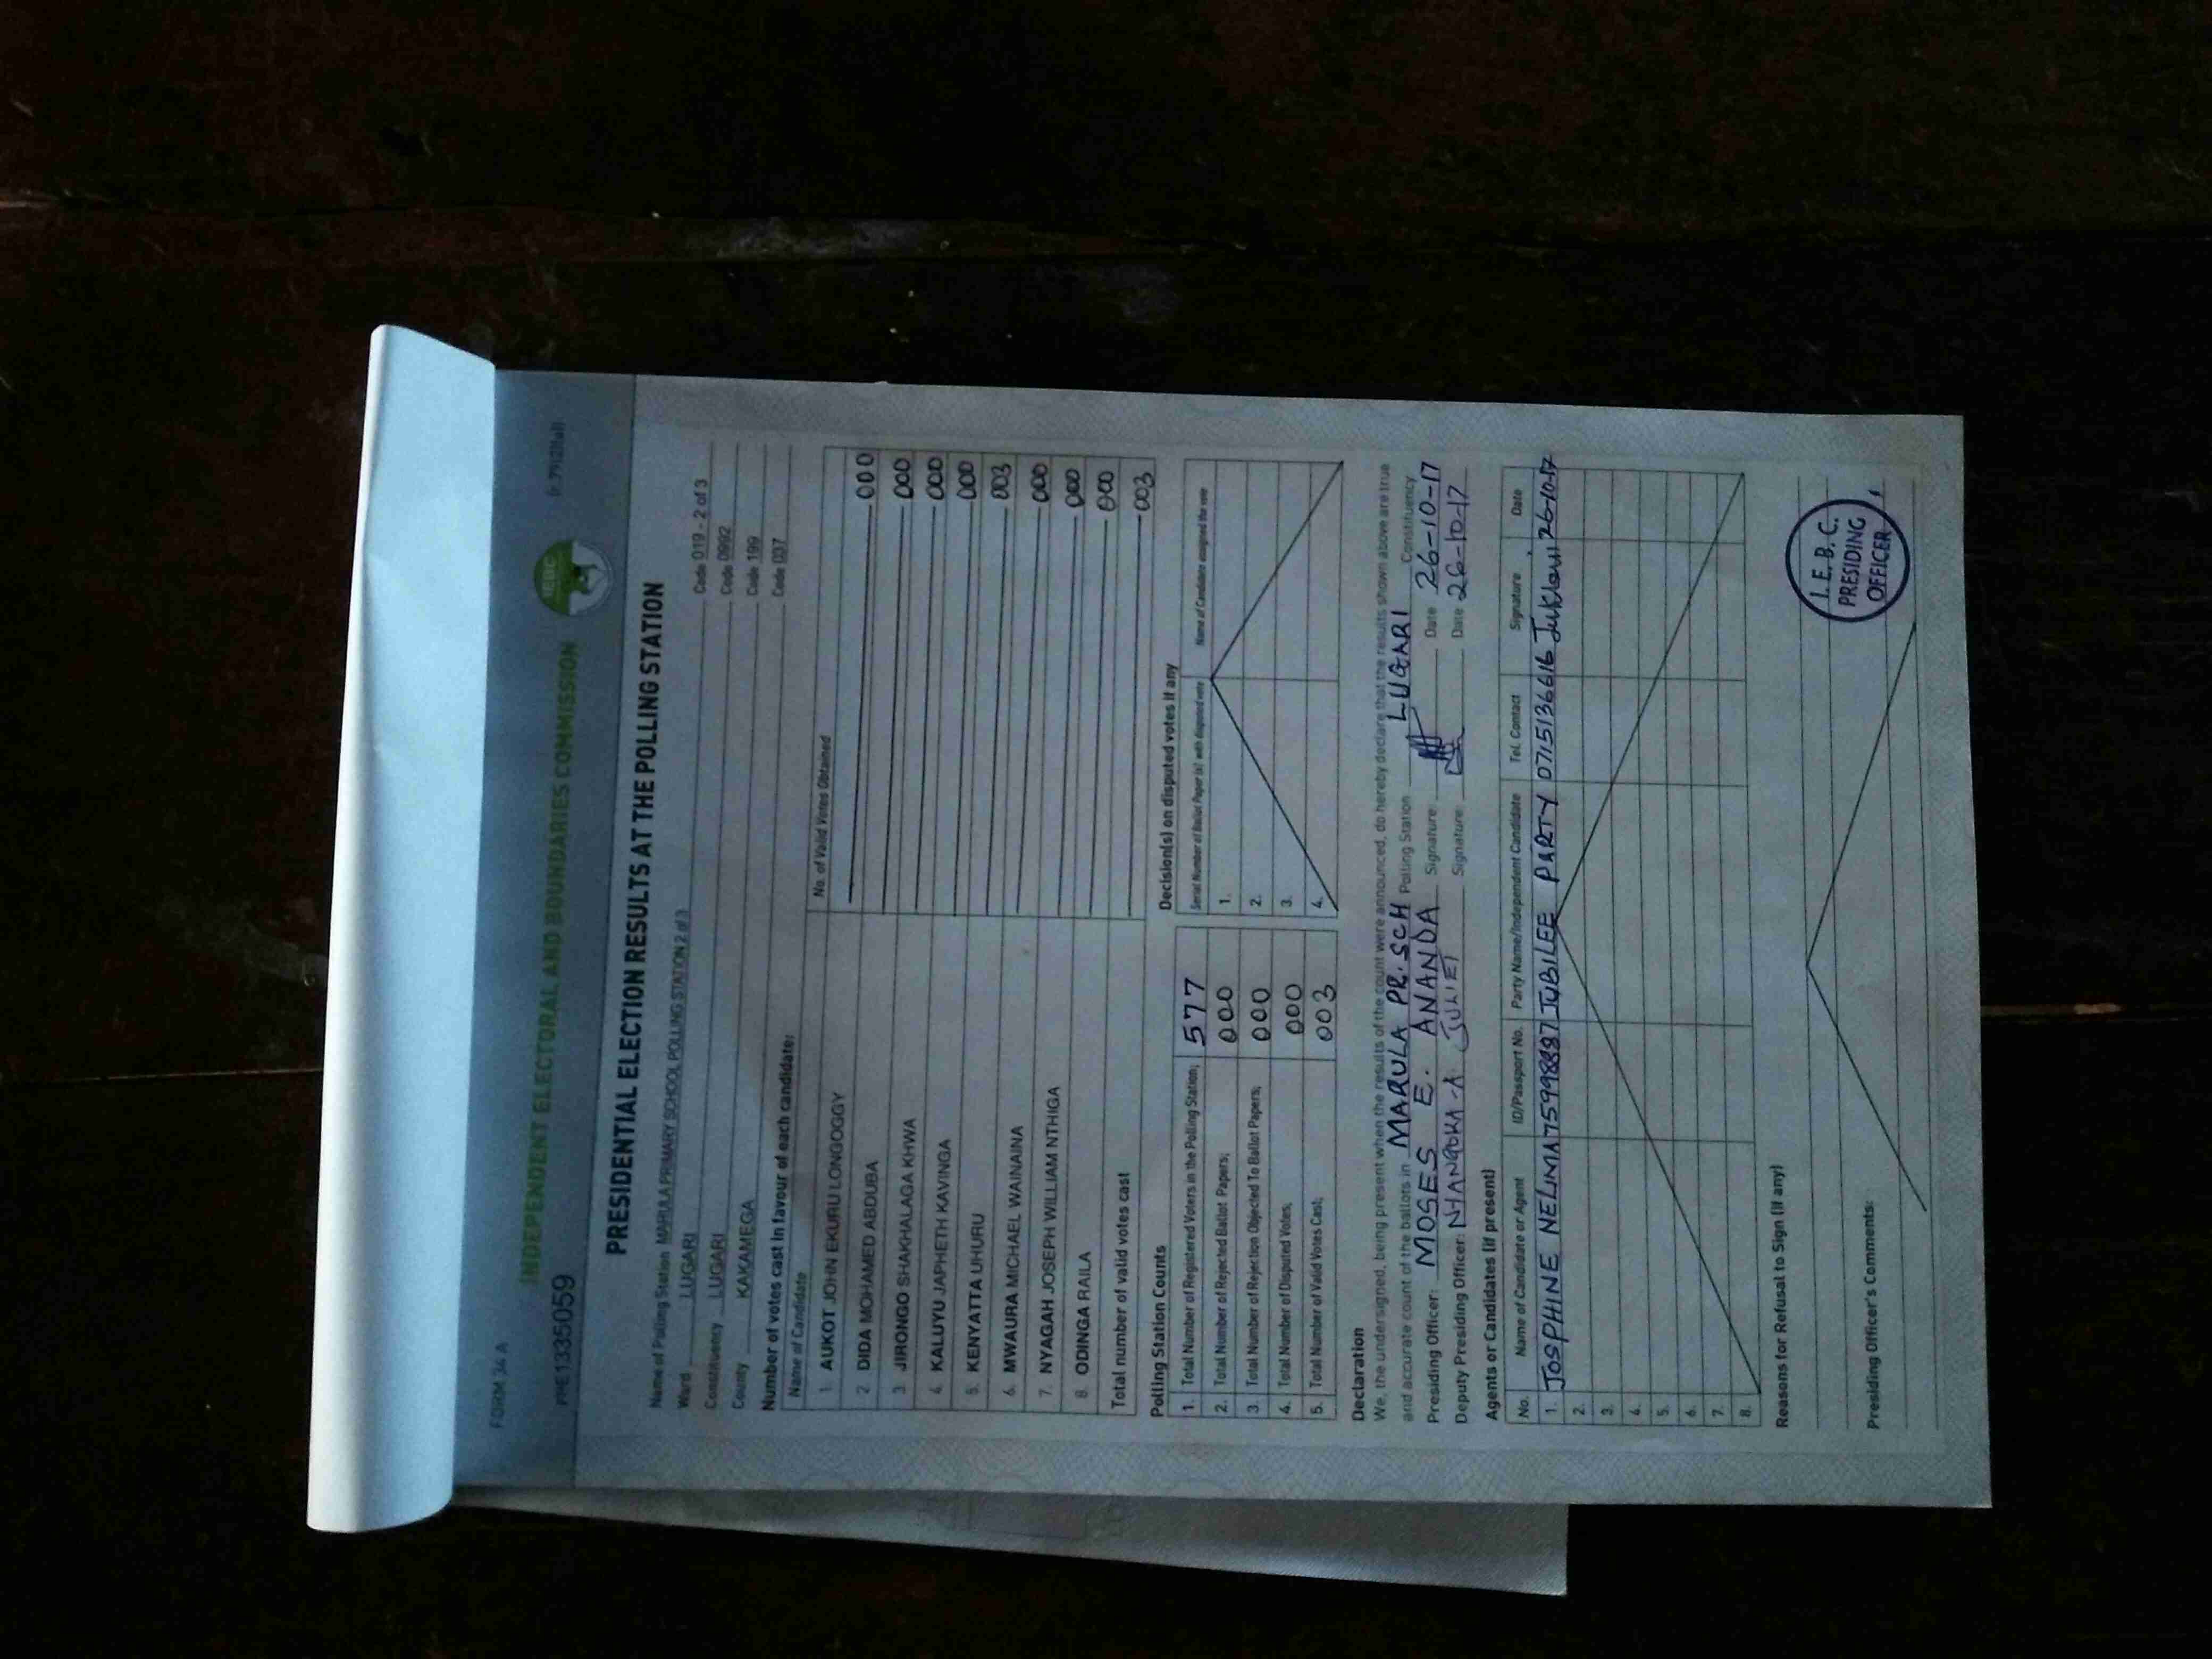 FORM 34 A
INDEPENDENT ELECTORAL AND BOUNDARIES COMMISSION
IEBC
PRE1335059
PRESIDENTIAL ELECTION RESULTS AT THE POLLING STATION
Name of Polling Station MARULA PRIMARY SCHOOL POLLING STATION 2 of 3 Code 019 - 2 of 3
Ward LUGARI Code 0992
Constituency LUGARI Code 199
County KAKAMEGA Code 037
Number of votes cast in favour of each candidate:
Name of Candidate No. of Valid Votes Obtained
1. AUKOT JOHN EKURU LONGOGGY 000
2. DIDA MOHAMED ABDUBA 000
3. JIRONGO SHAKHALAGA KHWA 000
4. KALUYU JAPHETH KAVINGA 000
5. KENYATTA UHURU 003
6. MWAURA MICHAEL WAINAINA 000
7. NYAGAH JOSEPH WILLIAM NTHIGA 000
8. ODINGA RAILA 000
Total number of valid votes cast 003
Polling Station Counts
1. Total Number of Registered Voters in the Polling Station; 577
2. Total Number of Rejected Ballot Papers; 000
3. Total Number of Rejection Objected To Ballot Papers; 000
4. Total Number of Disputed Votes; 000
5. Total Number of Valid Votes Cast; 003
Decision(s) on disputed votes if any
Serial Number of Ballot Paper (s) with disputed vote Name of Candidate assigned the vote
1.
2.
3.
4.
Declaration
We, the undersigned, being present when the results of the count were announced, do hereby declare that the results shown above are true
and accurate count of the ballots in MARULA PR. SCH Polling Station LUGARI Constituency
Presiding Officer: MOSES E. ANANDA Signature: Date 26-10-17
Deputy Presiding Officer: JULIET Signature: Date 26-10-17
Agents or Candidates (if present)
No. Name of Candidate or Agent ID/Passport No. Party Name/Independent Candidate Tel. Contact Signature Date
1. JOSPHINE NELIMA JUBILEE PARTY 0715136616 26-10-17
2.
3.
4.
5.
6.
7.
8.
Reasons for Refusal to Sign (if any)
I. E. B. C.
PRESIDING
OFFICER
Presiding Officer's Comments: